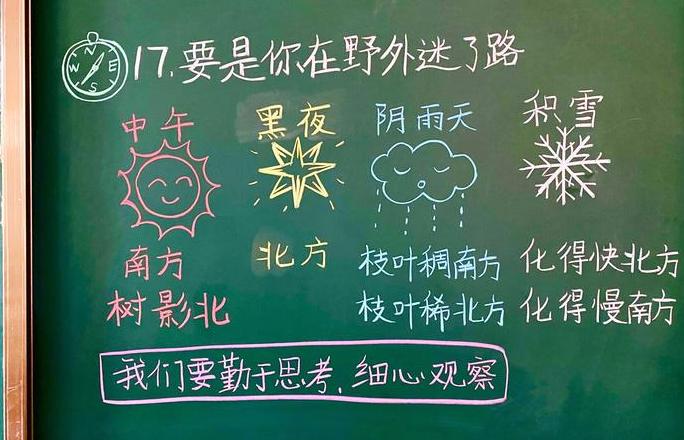 N
W E
S
17.要是你在野外迷了路
中午 黑夜 阴雨天 积雪
南方 北方 枝叶稠南方 化得快北方
树影北 枝叶稀北方 化得慢南方
我们要勤于思考,细心观察